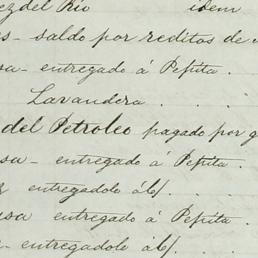 ez del Rio idem
s- saldo por reditos de
sa- entregado á Pepita.
Lavandera.
del Petroleo pagado por g
sa- entregado á Pepita.
entregadole á
usa entregado á Pepita.
- entregadole á